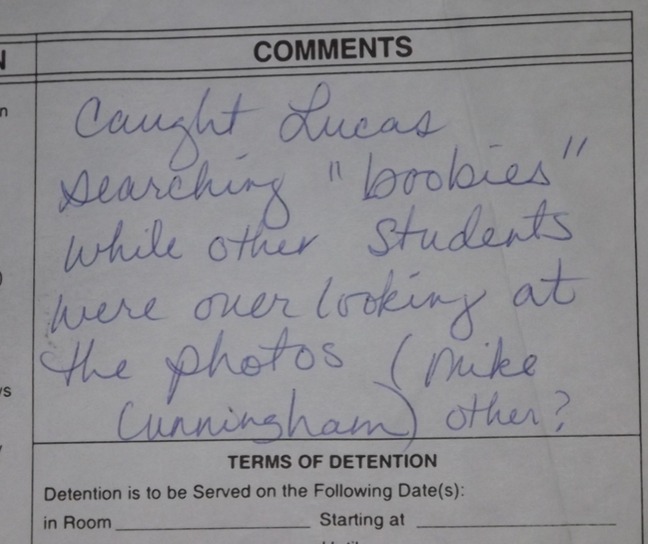 N
COMMENTS
n
Caught Lucas
searching "boobies"
while other students
were over looking at
the photos (Mike
Cunningham) other?
)
ys
TERMS OF DETENTION
Detention is to be Served on the Following Date(s):
in Room Starting at